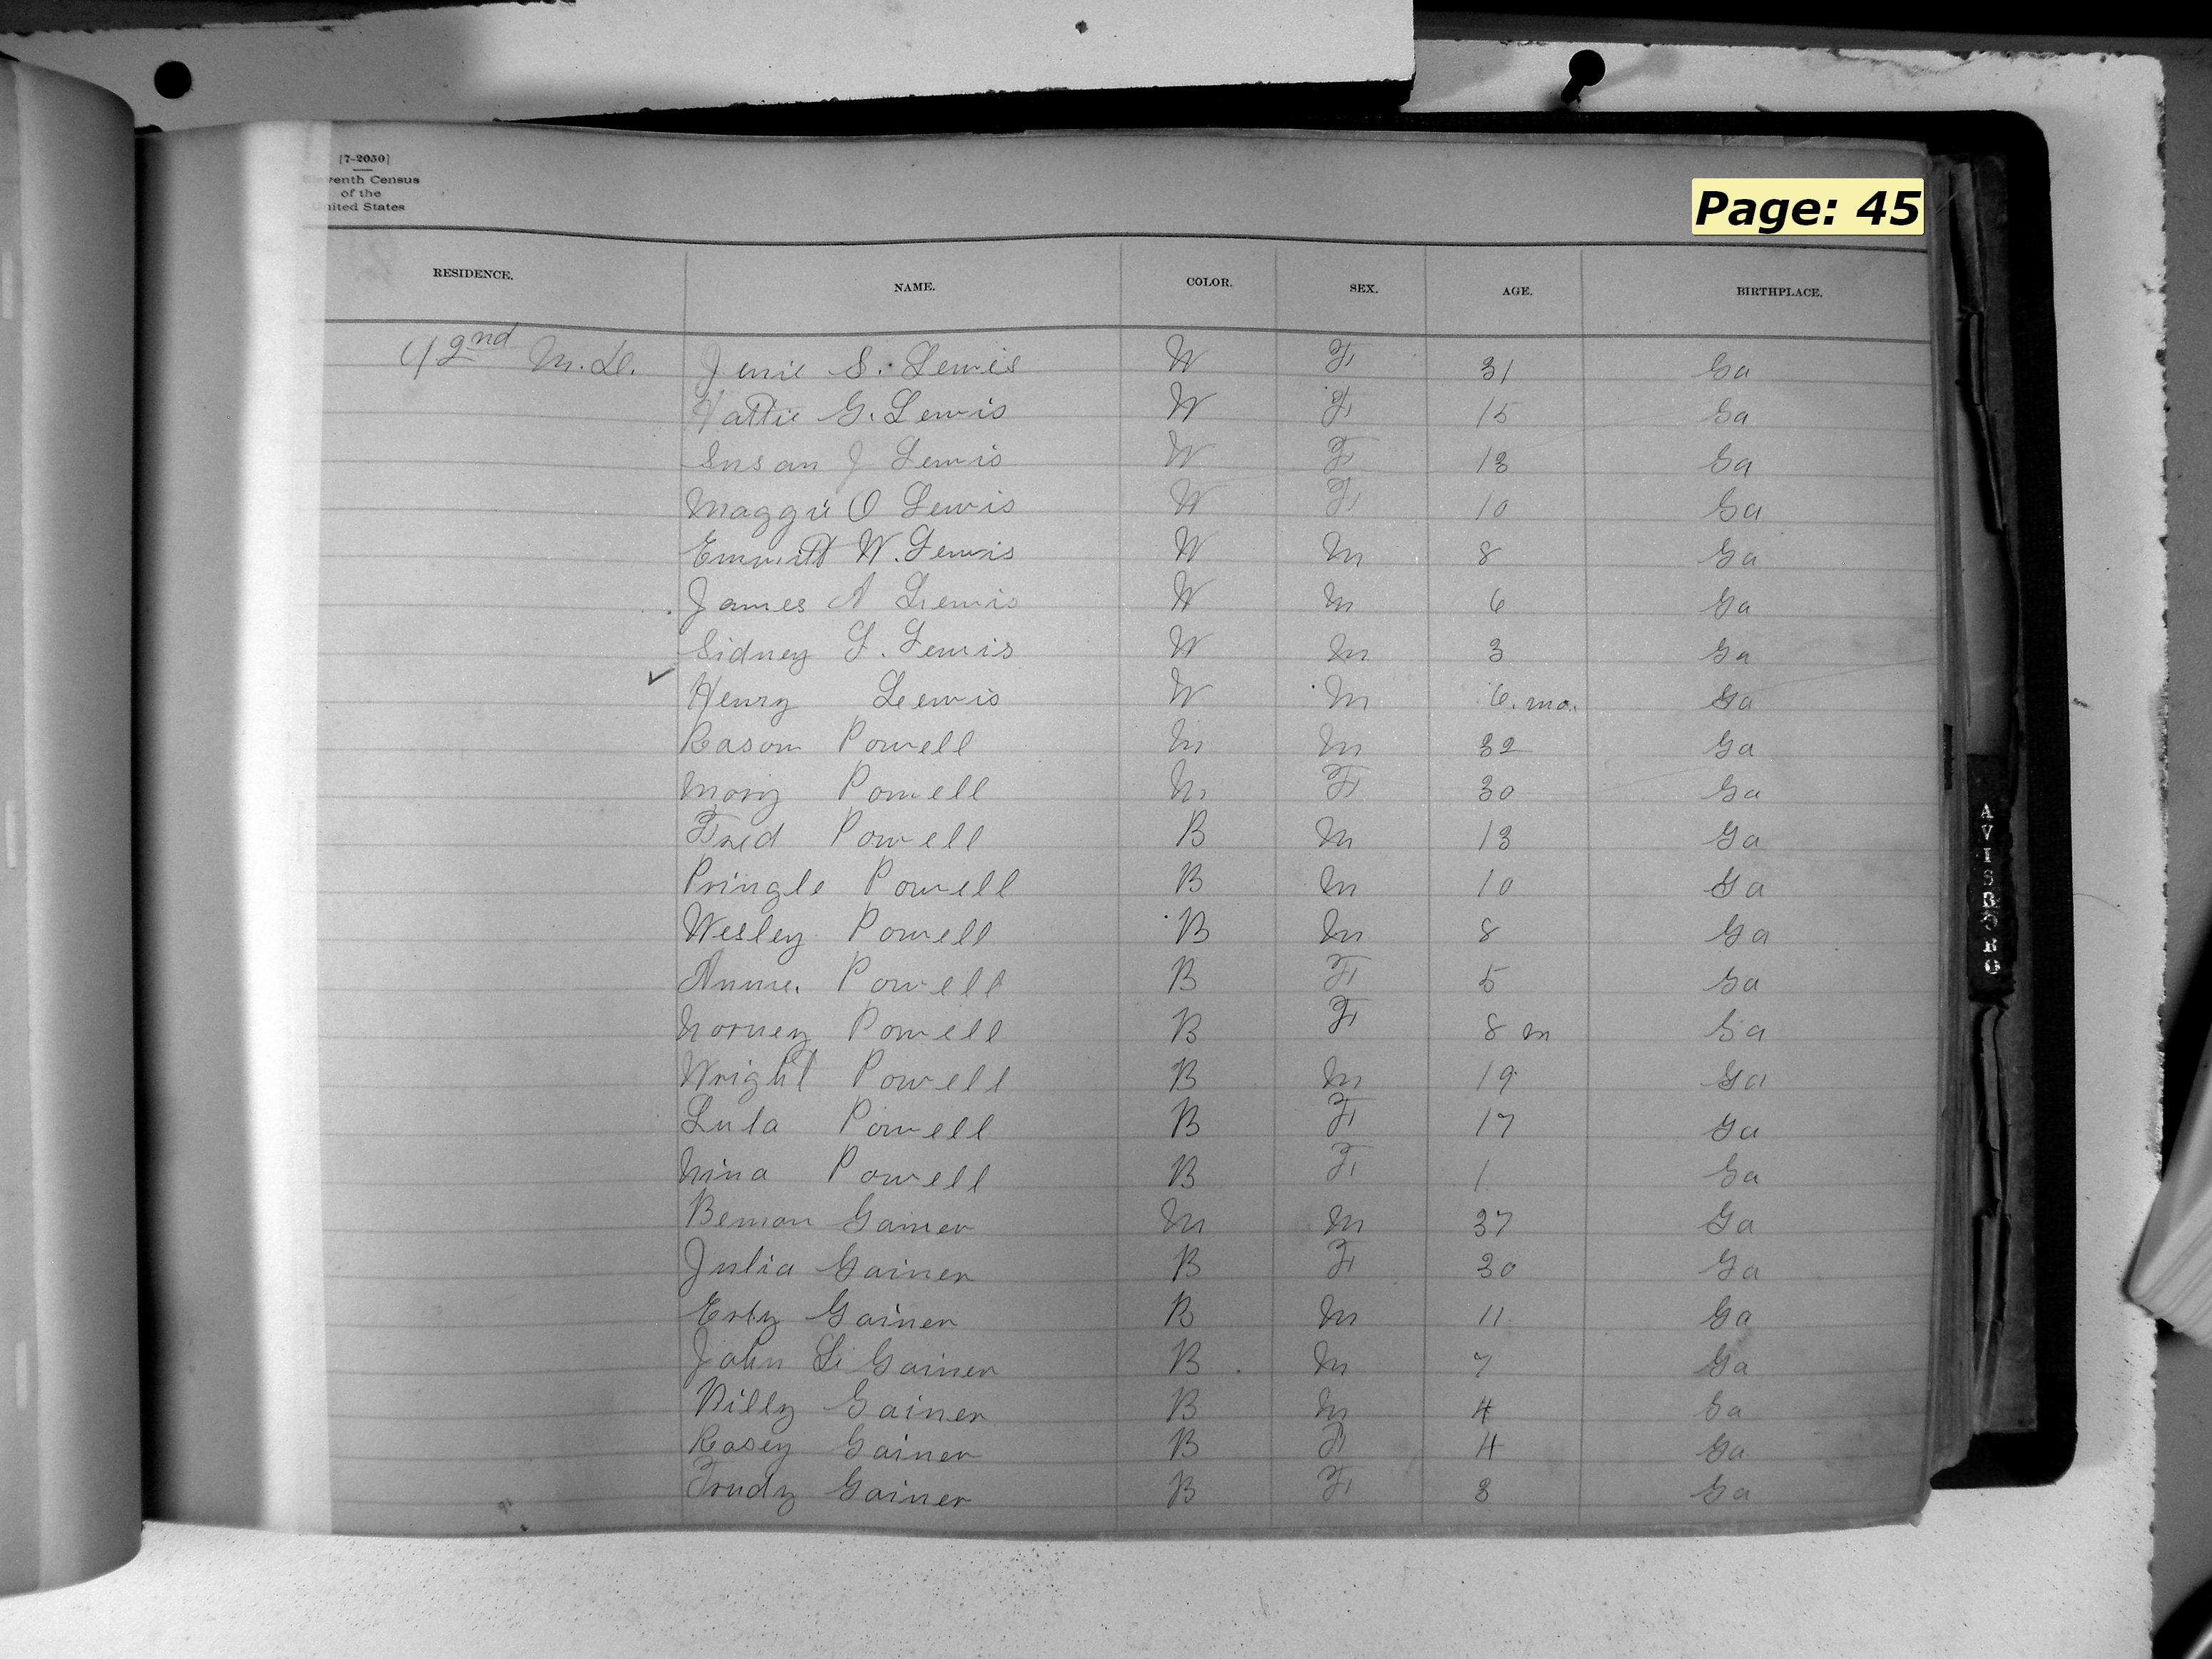 [7-2050]
Eleventh Census
of the
United States
Page: 45
RESIDENCE. NAME. COLOR. SEX. AGE. BIRTHPLACE.
42nd M.D. Janie S. Lewis W F 31 Ga
Hattie G. Lewis W F 15 Ga
Susan J Lewis W F 13 Ga
Maggie O Lewis W F 10 Ga
Emmitt W. Lewis W M 8 Ga
James A Lewis W M 6 Ga
Sidney L. Lewis W M 3 Ga
Henry Lewis W M 6. mo. Ga
Reason Powell M M 32 Ga
Mary Powell M F 30 Ga
Fred Powell B M 13 Ga
Pringle Powell B M 10 Ga
Wesley Powell B M 8 Ga
Annie Powell B F 5 Ga
Powell B F 8 m Ga
Wright Powell B M 19 Ga
Lula Powell B F 17 Ga
Nina Powell B F 1 Ga
Beman Gainer M M 37 Ga
Julia Gainer B F 30 Ga
Erby Gainer B M 11 Ga
John L Gainer B M 7 Ga
Billy Gainer B M 4 Ga
Rosey Gainer B F 4 Ga
Trudy Gainer B F 3 Ga
AVISBORO